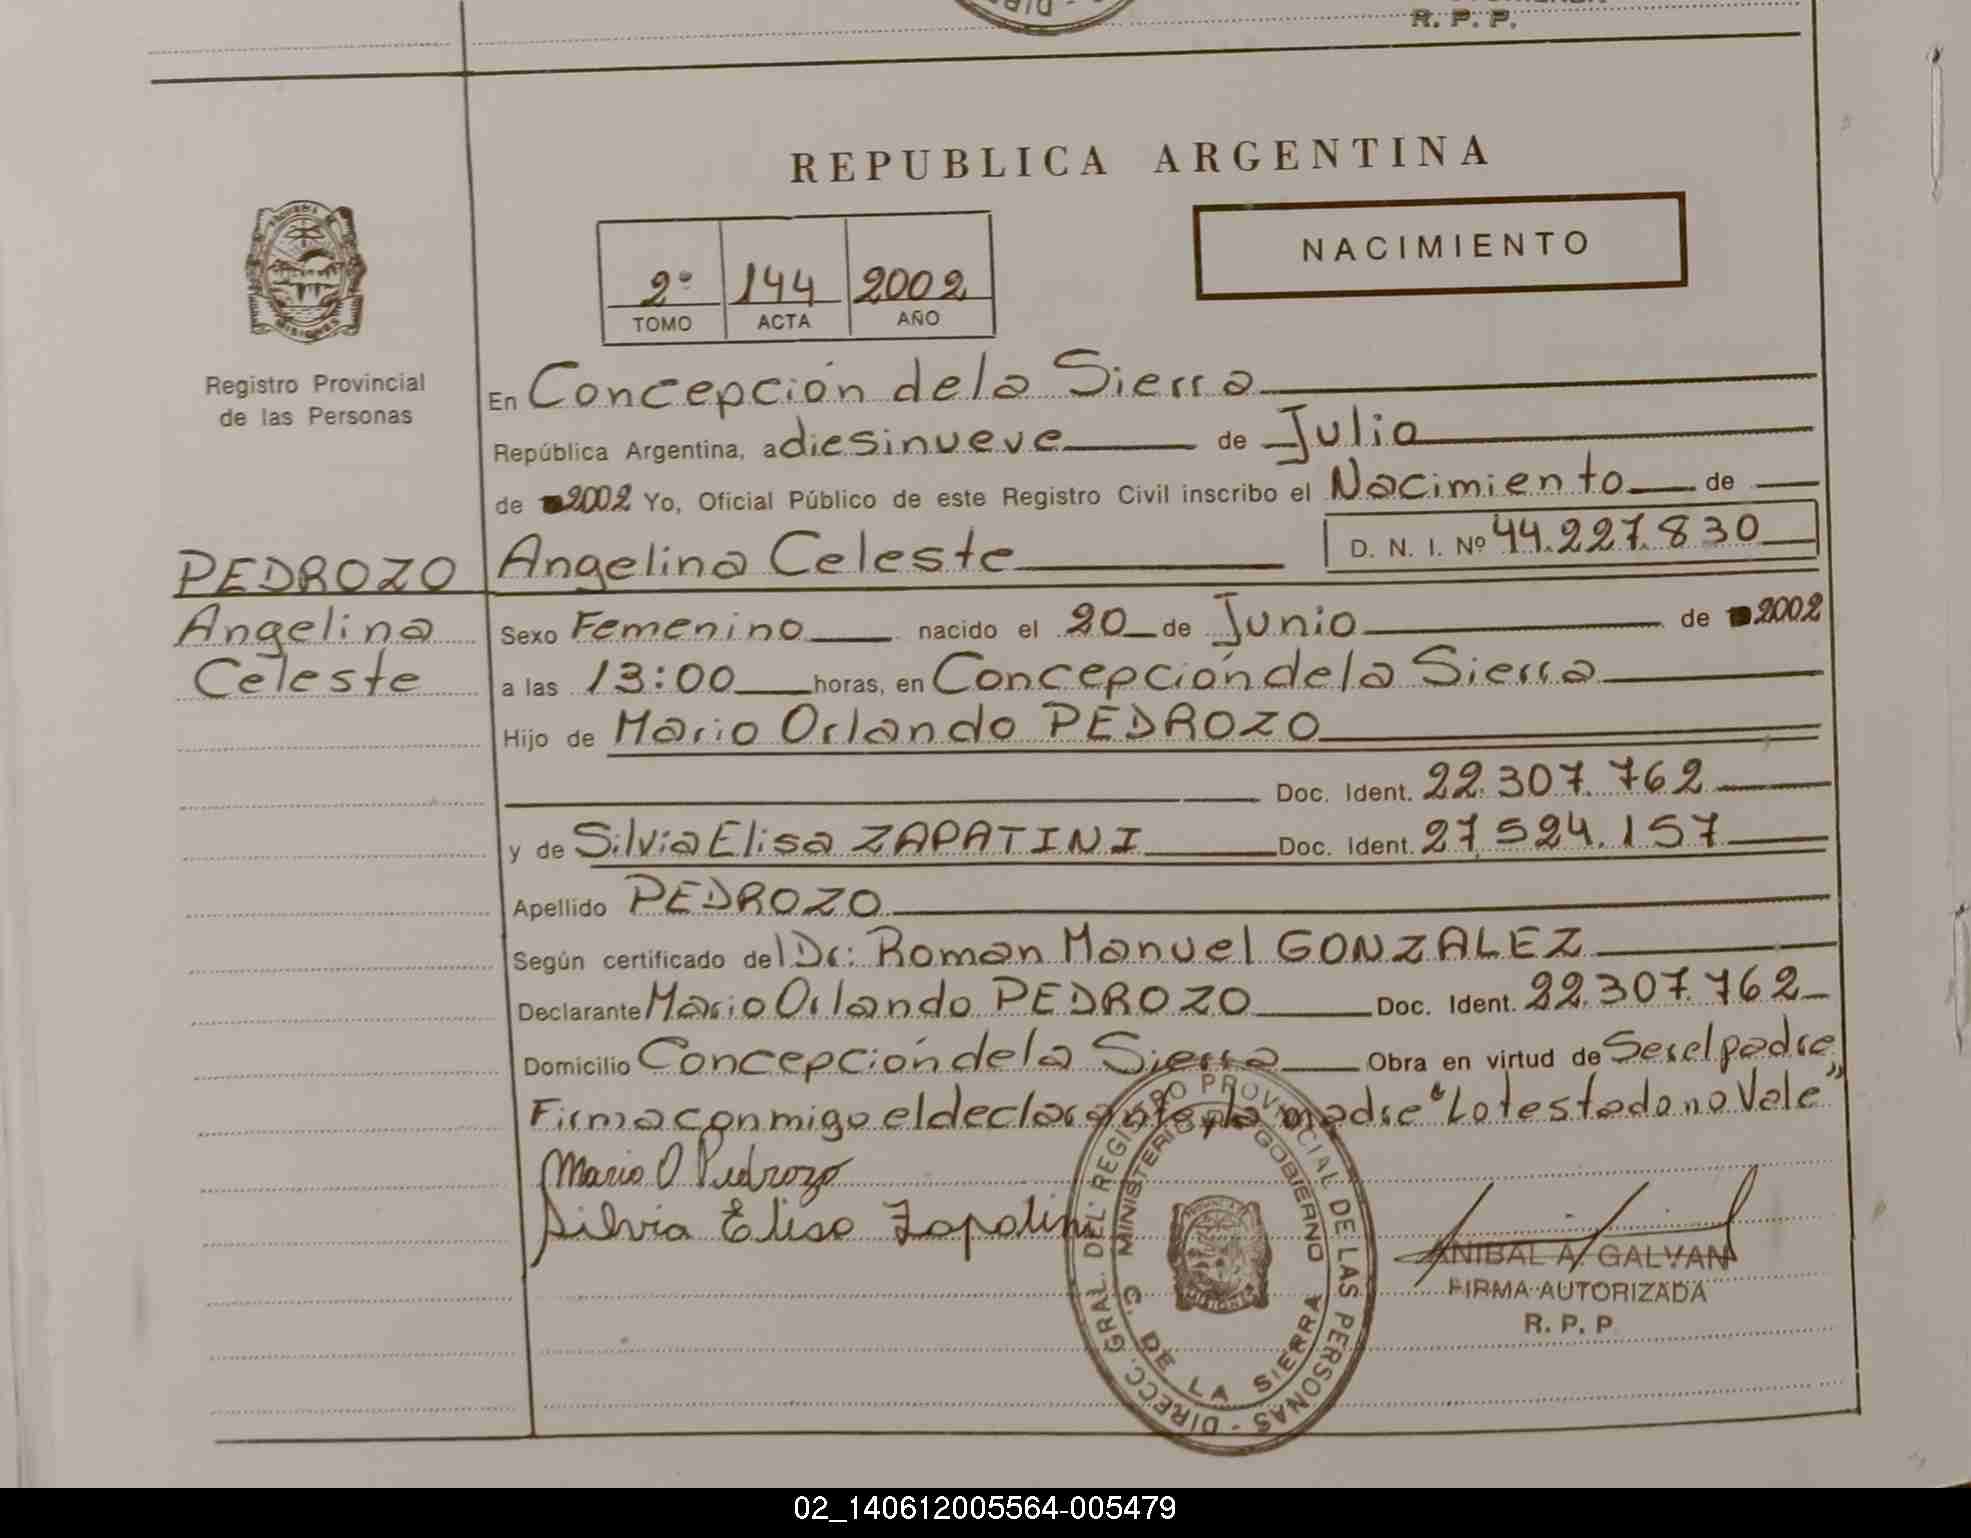 R. P. P.
REPUBLICA ARGENTINA
NACIMIENTO
2º 144 2002
TOMO ACTA AÑO
MISIONES
Registro Provincial
de las Personas
PEDROZO
Angelina
Celeste
En Concepción de la Sierra
República Argentina, a diesinueve de Julio
de 2002 Yo, Oficial Público de este Registro Civil inscribo el Nacimiento de
Angelina Celeste D. N. I. Nº 44.227.830
Sexo Femenino nacido el 20 de Junio de 2002
a las 13:00 horas, en Concepción de la Sierra
Hijo de Mario Orlando PEDROZO
Doc. Ident. 22.307.762
y de Silvia Elisa ZAPATINI Doc. Ident. 27.524.157
Apellido PEDROZO
Según certificado del Dr: Roman Manuel GONZALEZ
Declarante Mario Orlando PEDROZO Doc. Ident. 22.307.762
Domicilio Concepción de la Sierra Obra en virtud de Ser el padre
Firma conmigo el declarante, la madre "Lo testado no Vale"
Mario O Pedrozo
Silvia Elisa Zapatini
DIRECC. GRAL. DEL REGISTRO PROVINCIAL DE LAS PERSONAS -
MINISTERIO DE GOBIERNO
C. DE LA SIERRA
MISIONES
ANIBAL A. GALVAN
FIRMA AUTORIZADA
R. P. P
02_140612005564-005479